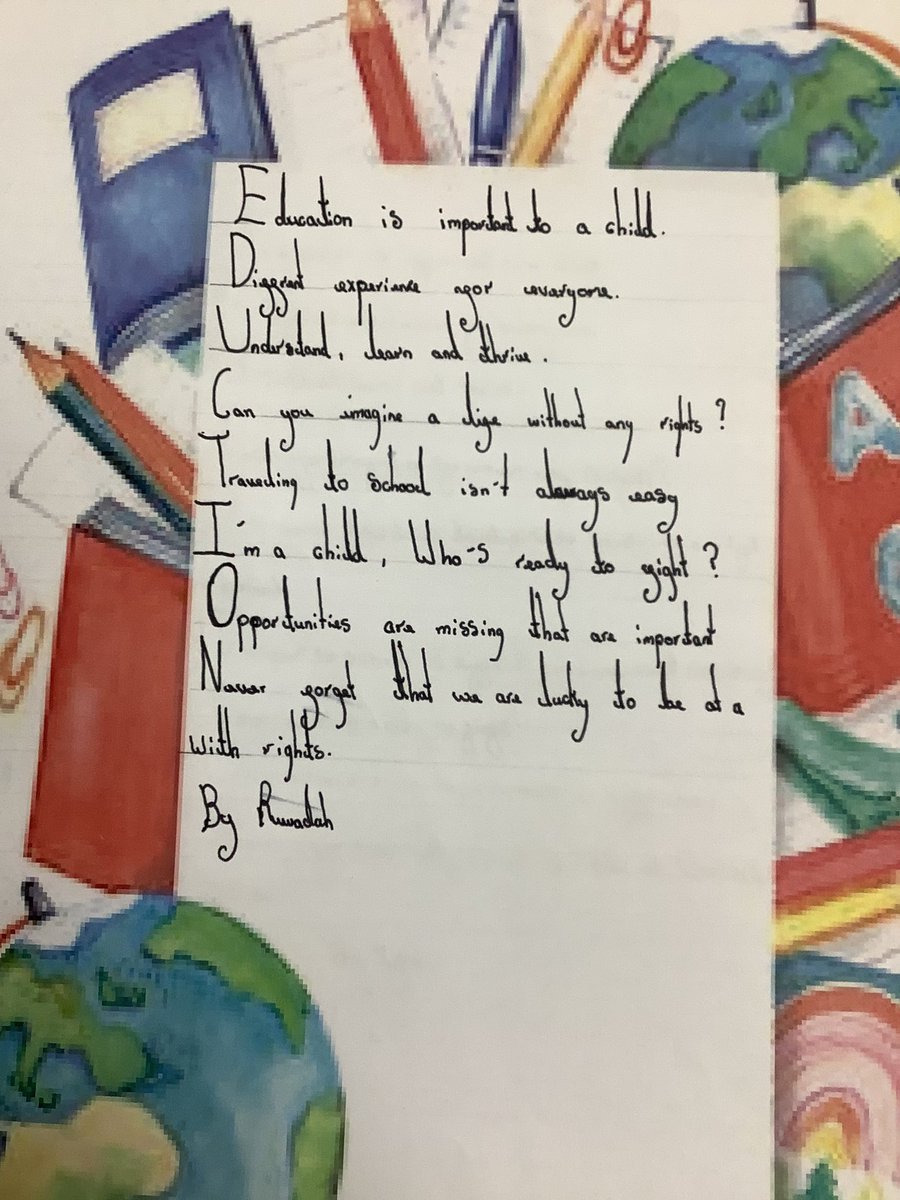 Education is important to a child.
Different experience for everyone.
Understand, learn and thrive.
Can you imagine a life without any rights?
Traveling to school isn't always easy
I'm a child, Who's ready to fight?
Opportunities are missing that are important
Never forget that we are lucky to be at a
with rights.
By Ruwadah
A